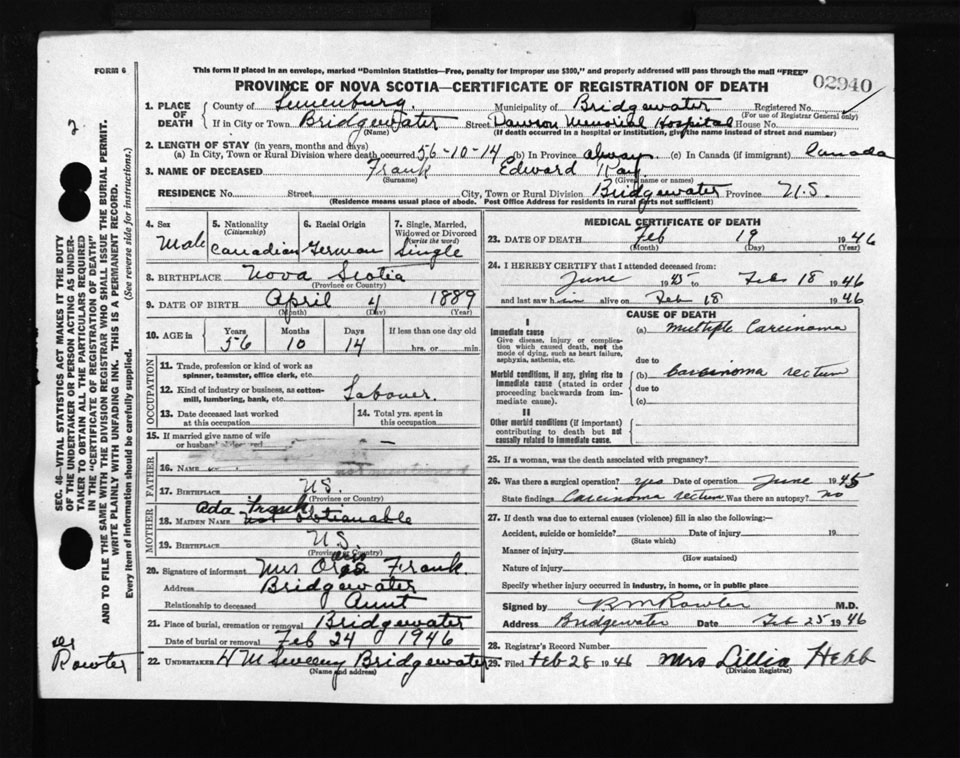 FORM 6
This form if placed in an envelope, marked "Dominion Statistics—Free, penalty for improper use $300," and properly addressed will pass through the mail "FREE"
PROVINCE OF NOVA SCOTIA—CERTIFICATE OF REGISTRATION OF DEATH
02940
1. PLACE OF DEATH
County of Lunenburg. Municipality of Bridgewater Registered No.
(For use of Registrar General only)
If in City or Town Bridgewater Street Dawson Memorial Hospital House No.
(Name) (If death occurred in a hospital or institution, give the name instead of street and number)
2. LENGTH OF STAY (in years, months and days)
(a) In City, Town or Rural Division where death occurred 56-10-14 (b) In Province always. (c) In Canada (if immigrant) Canada
3. NAME OF DECEASED Frank Edward Ray
(Surname) (Given name or names)
RESIDENCE No. Street City, Town or Rural Division Bridgewater Province N.S.
(Residence means usual place of abode. Post Office Address for residents in rural parts not sufficient)
4. Sex
Male
5. Nationality
(Citizenship)
Canadian
6. Racial Origin
German
7. Single, Married, Widowed or Divorced
(write the word)
Single
8. BIRTHPLACE Nova Scotia
(Province or Country)
9. DATE OF BIRTH April 4 1889
(Month) (Day) (Year)
10. AGE in Years Months Days If less than one day old
56 10 14 hrs. or min.
OCCUPATION
11. Trade, profession or kind of work as
spinner, teamster, office clerk, etc.
12. Kind of industry or business, as cotton-
mill, lumbering, bank, etc. Labouer.
13. Date deceased last worked
at this occupation
14. Total yrs. spent in
this occupation
15. If married give name of wife
or husband of deceased
FATHER
16. NAME
not mentioned
17. BIRTHPLACE N.S.
(Province or Country)
MOTHER
Ada Frank
18. MAIDEN NAME Not obtianable
19. BIRTHPLACE N.S.
(Province or Country)
20. Signature of informant Mrs Frank.
Address Bridgewater
Relationship to deceased Aunt
21. Place of burial, cremation or removal Bridgewater
Date of burial or removal Feb 24 1946
22. UNDERTAKER H M Sweeny Bridgewater
(Name and address)
MEDICAL CERTIFICATE OF DEATH
23. DATE OF DEATH Feb 19 1946
(Month) (Day) (Year)
24. I HEREBY CERTIFY that I attended deceased from:
June 1945 to Feb 18 1946
and last saw him alive on Feb 18 1946
CAUSE OF DEATH
I
Immediate cause
Give disease, injury or complica-
tion which caused death, not the
mode of dying, such as heart failure,
asphyxia, asthenia, etc.
(a) multiple Carcinoma
due to
Morbid conditions, if any, giving rise to
immediate cause (stated in order
proceeding backwards from im-
mediate cause).
(b) Carcinoma rectum
due to
(c)
II
Other morbid conditions (if important)
contributing to death but not
causally related to immediate cause.
25. If a woman, was the death associated with pregnancy?
26. Was there a surgical operation? yes Date of operation June 1945
State findings Carcinoma rectum Was there an autopsy? no
27. If death was due to external causes (violence) fill in also the following:—
Accident, suicide or homicide? Date of injury 19
(State which)
Manner of injury
(How sustained)
Nature of injury
Specify whether injury occurred in industry, in home, or in public place
Signed by M.D.
Address Bridgewater Date Feb 25 1946
28. Registrar's Record Number
29. Filed Feb 28 1946 Mrs Lillia Hebb
(Division Registrar)
SEC. 46—VITAL STATISTICS ACT MAKES IT THE DUTY
OF THE UNDERTAKER OR PERSON ACTING AS UNDER-
TAKER TO OBTAIN ALL THE PARTICULARS REQUIRED
IN THE "CERTIFICATE OF REGISTRATION OF DEATH"
AND TO FILE THE SAME WITH THE DIVISION REGISTRAR WHO SHALL ISSUE THE BURIAL PERMIT.
WRITE PLAINLY WITH UNFADING INK. THIS IS A PERMANENT RECORD.
Every item of information should be carefully supplied. (See reverse side for instructions.)
2.